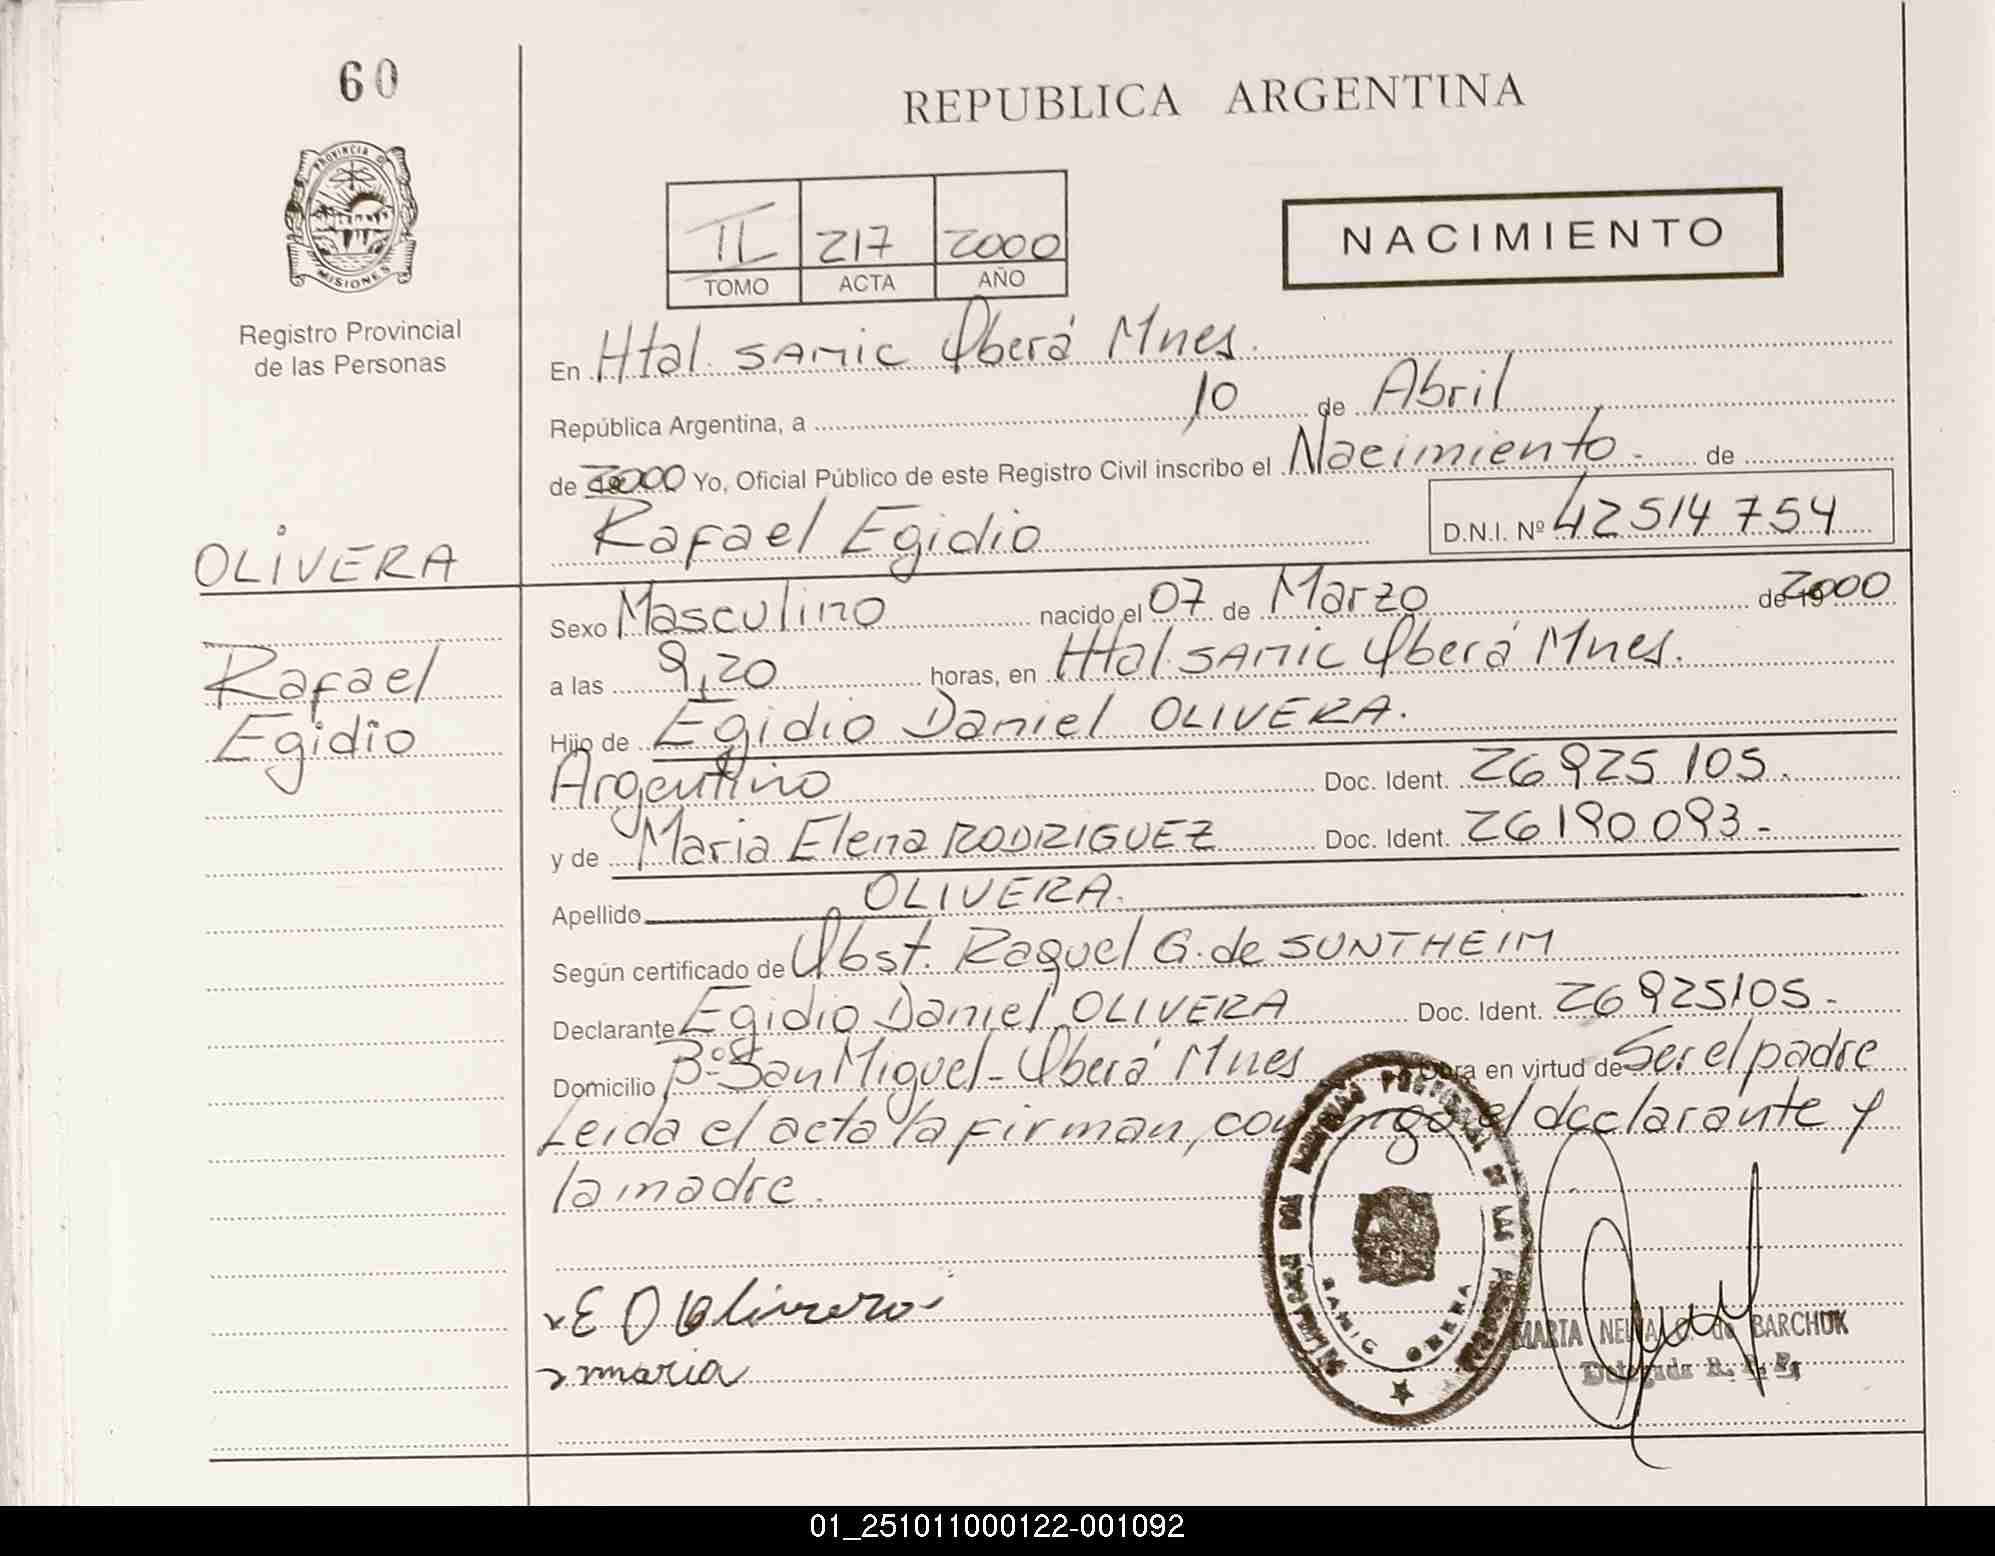 60
REPUBLICA ARGENTINA
PROVINCIA DE
MISIONES
Registro Provincial
de las Personas
II 217 2000
TOMO ACTA AÑO
NACIMIENTO
En Htal. SAMIC Oberá Mnes.
República Argentina, a 10 de Abril
de 2000 Yo, Oficial Público de este Registro Civil inscribo el Nacimiento - de
Rafael Egidio D.N.I. Nº 42514754
OLIVERA
Rafael
Egidio
Sexo Masculino nacido el 07 de Marzo de 19 2000
a las 9,20 horas, en Htal. SAMIC Oberá Mnes.
Hijo de Egidio Daniel OLIVERA.
Argentino Doc. Ident. 26925105.
y de Maria Elena RODRIGUEZ Doc. Ident. 26190093-
Apellido OLIVERA.
Según certificado de Obst. Raquel G. de SUNTHEIM
Declarante Egidio Daniel OLIVERA Doc. Ident. 26925105-
Domicilio Bº San Miguel - Oberá Mnes Obra en virtud de Ser el padre
Leida el acta la firman, conmigo el declarante y
la madre.
E D Olivera
maria
SAMIC OBERA
MARTA NELIDA C. de BARCHUK
Delegada R. P. P.
01_251011000122-001092